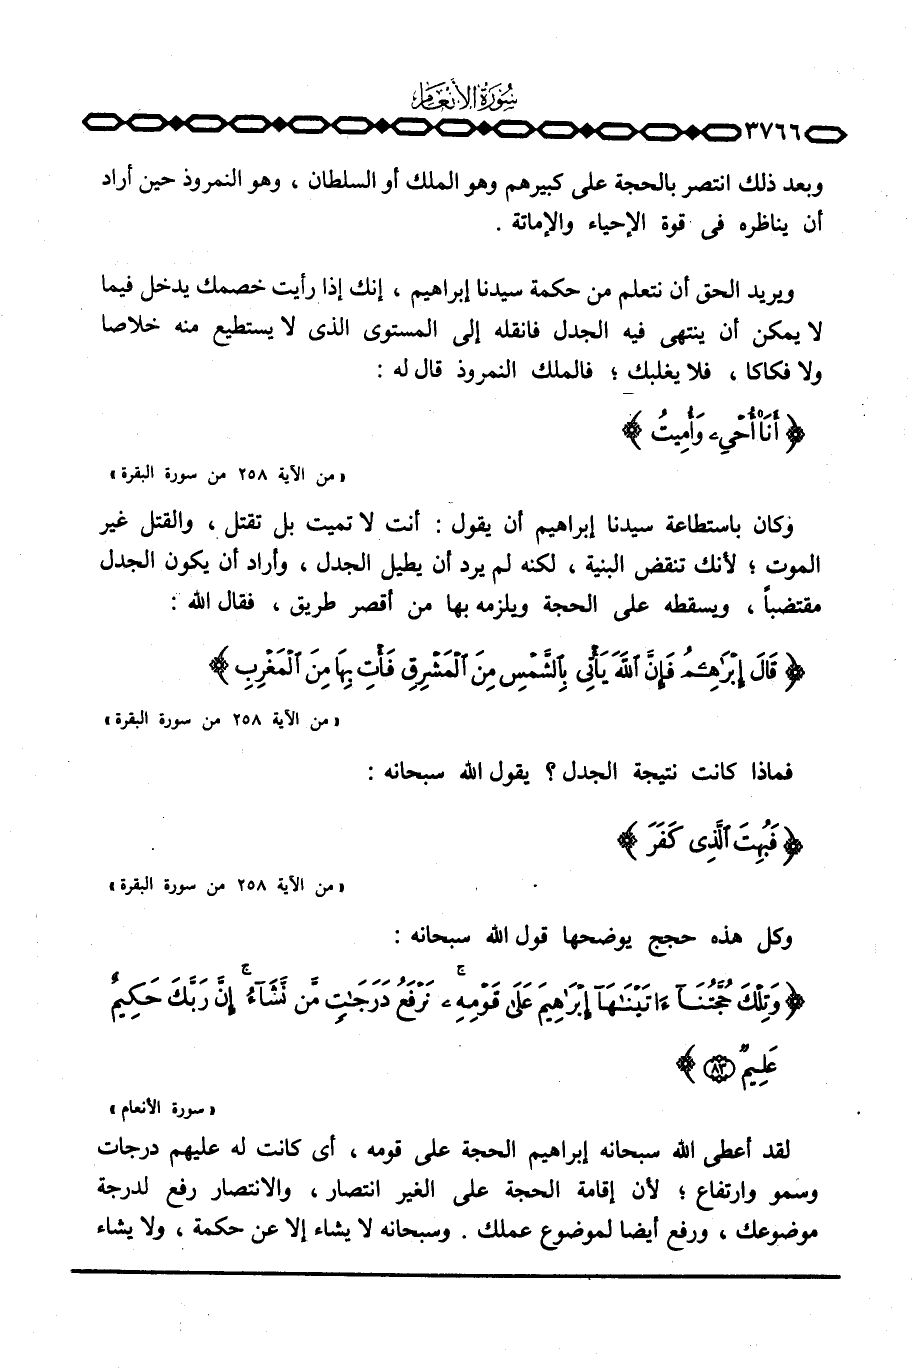 سُورَةُ الأَنْعَام
٣٧٦٦
وبعد ذلك انتصر بالحجة على كبيرهم وهو الملك أو السلطان ، وهو النمروذ حين أراد
أن يناظره فى قوة الإحياء والإماتة .
ويريد الحق أن نتعلم من حكمة سيدنا إبراهيم ، إنك إذا رأيت خصمك يدخل فيما
لا يمكن أن ينتهى فيه الجدل فانقله إلى المستوى الذى لا يستطيع منه خلاصا
ولا فكاكا ، فلا يغلبك ؛ فالملك النمروذ قال له :
﴿ أَنَا۠ أُحْىِۦ وَأُمِيتُ ﴾
« من الآية ٢٥٨ من سورة البقرة »
وكان باستطاعة سيدنا إبراهيم أن يقول : أنت لا تميت بل تقتل ، والقتل غير
الموت ؛ لأنك تنقض البنية ، لكنه لم يرد أن يطيل الجدل ، وأراد أن يكون الجدل
مقتضباً ، ويسقطه على الحجة ويلزمه بها من أقصر طريق ، فقال الله :
﴿ قَالَ إِبْرَٰهِـۧمُ فَإِنَّ ٱللَّهَ يَأْتِى بِٱلشَّمْسِ مِنَ ٱلْمَشْرِقِ فَأْتِ بِهَا مِنَ ٱلْمَغْرِبِ ﴾
« من الآية ٢٥٨ من سورة البقرة »
فماذا كانت نتيجة الجدل ؟ يقول الله سبحانه :
﴿ فَبُهِتَ ٱلَّذِى كَفَرَ ﴾
« من الآية ٢٥٨ من سورة البقرة »
وكل هذه حجج يوضحها قول الله سبحانه :
﴿ وَتِلْكَ حُجَّتُنَآ ءَاتَيْنَٰهَآ إِبْرَٰهِيمَ عَلَىٰ قَوْمِهِۦ ۚ نَرْفَعُ دَرَجَٰتٍ مَّن نَّشَآءُ ۗ إِنَّ رَبَّكَ حَكِيمٌ
عَلِيمٌ ٨٣ ﴾
« سورة الأنعام »
لقد أعطى الله سبحانه إبراهيم الحجة على قومه ، أى كانت له عليهم درجات
وسمو وارتفاع ؛ لأن إقامة الحجة على الغير انتصار ، والانتصار رفع لدرجة
موضوعك ، ورفع أيضا لموضوع عملك . وسبحانه لا يشاء إلا عن حكمة ، ولا يشاء